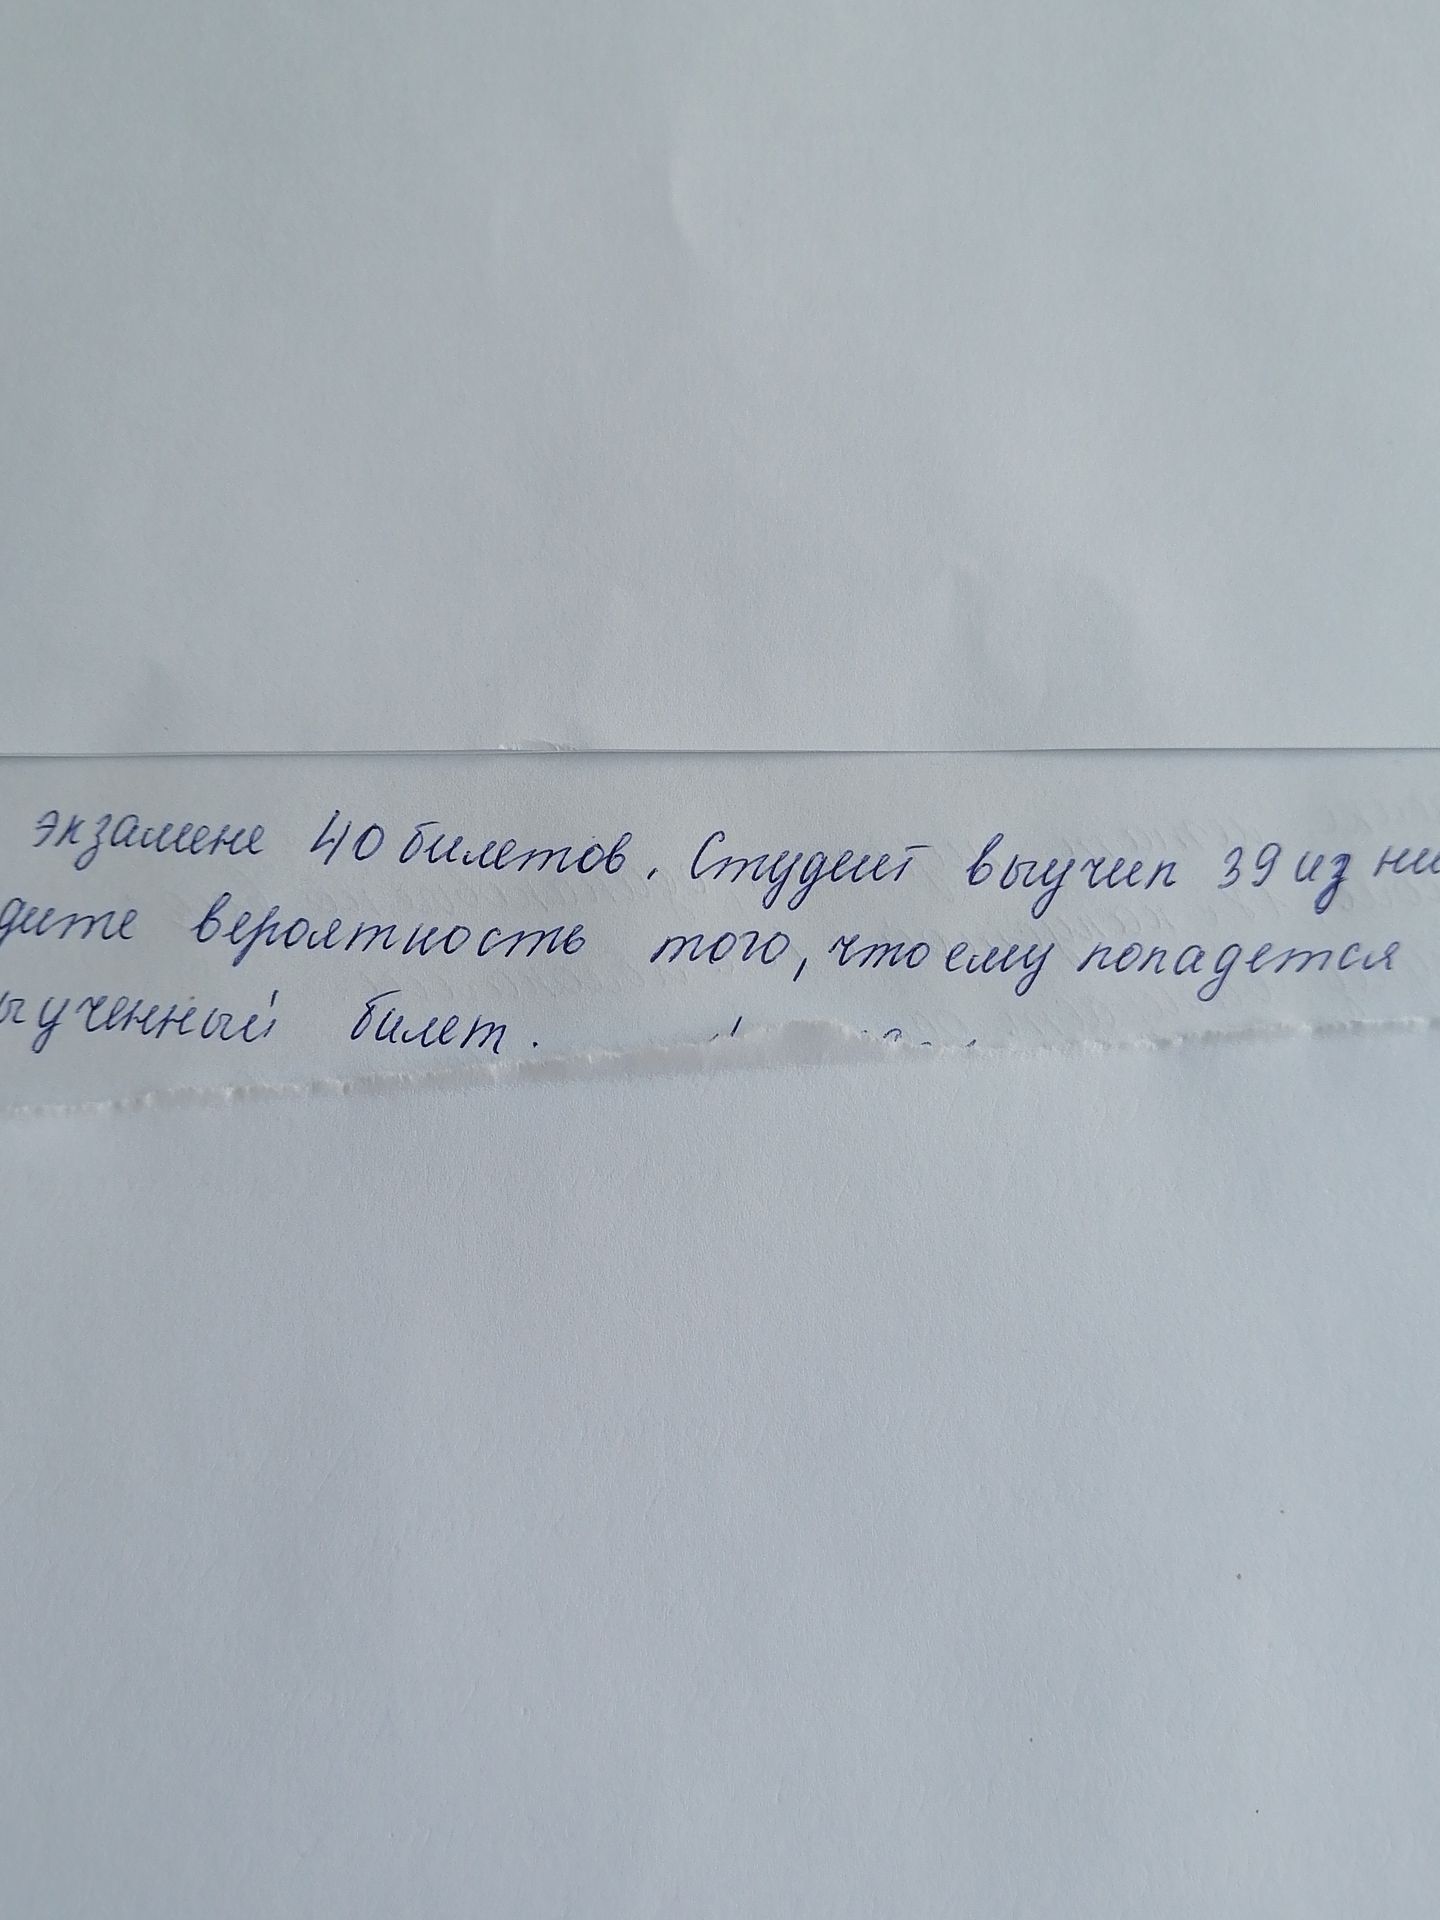 экзамене 40 билетов. Студент выучил 39 из ни
дите вероятность того, что ему попадется
ыученный билет.